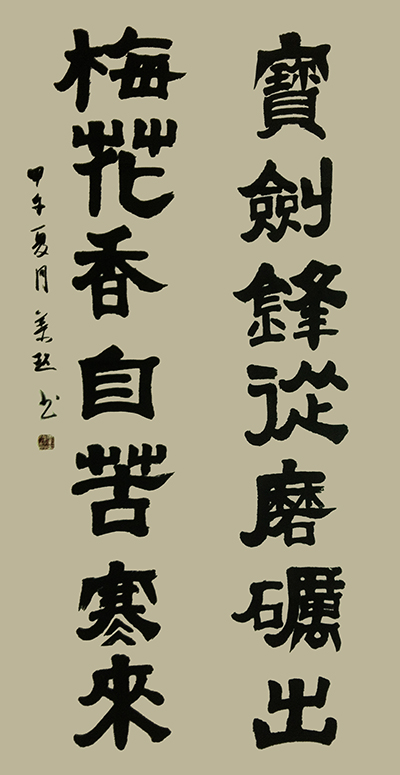 寶劍鋒從磨礪出
梅花香自苦寒來
甲午夏月 书